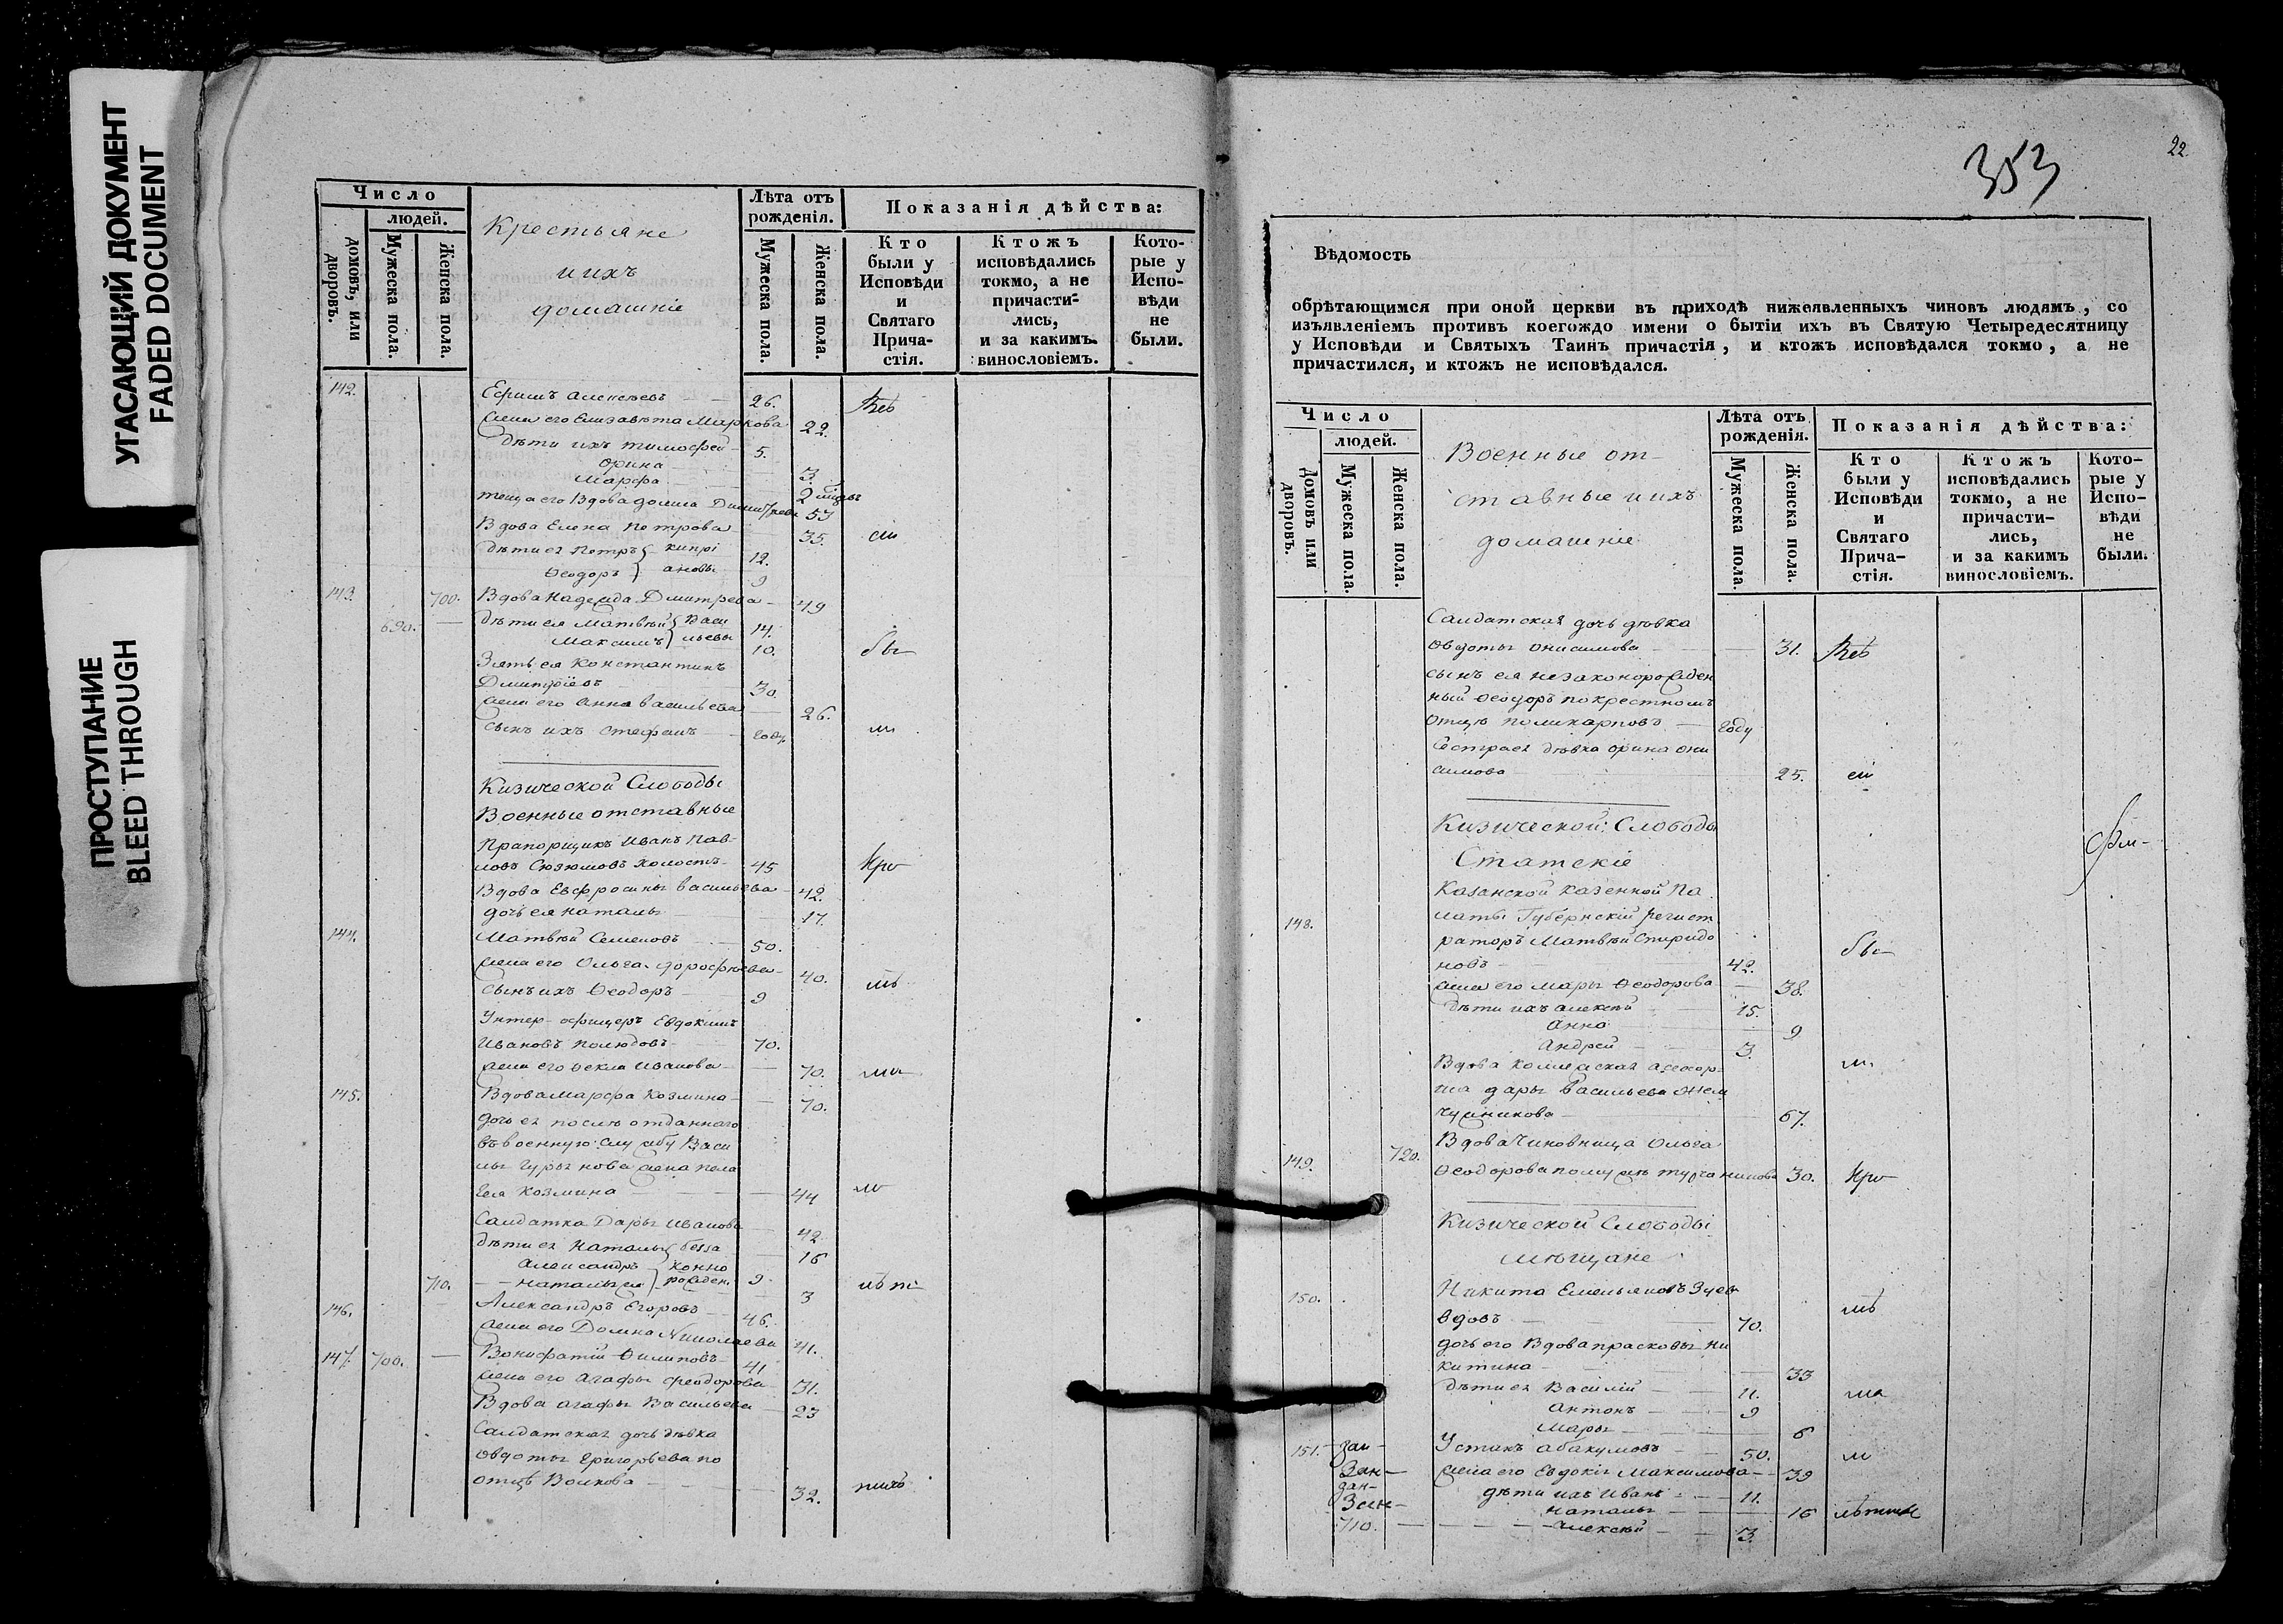 УГАСАЮЩИЙ ДОКУМЕНТ
FADED DOCUMENT
ПРОСТУПАНИЕ
BLEED THROUGH
Число
людей.
домовъ, или дворовъ.
Мужеска пола.
Женска пола.
Крестьяне
и ихъ
домашніе
Лѣта отъ рожденія.
Мужеска пола.
Женска пола.
Показанія дѣйства:
Кто были у Исповѣди и Святаго Прича-стія.
Ктожъ исповѣдались токмо, а не причасти-лись, и за какимъ винословіемъ.
Кото-рые у Испо-вѣди не были.
142. Ефимъ Алексѣевъ 26. Всѣ
жена его Елизавѣта Маркова 22.
дѣти ихъ Тимофей 5.
Орина 3.
Марфа 2
теща его Вдова Домна 53
Вдова Елена Петрова 35. сіи
дѣти ея Петръ кипрі 12.
Ѳеодоръ ановы 9
143. 700. Вдова Надежда Дмитрева 49
690. дѣти ея Матвѣй Васи 14.
Максимъ льевы 10. бы
Зять ея Константинъ
Дмитріевъ 30.
жена его Анна Васильева 26.
сынъ ихъ Стефанъ году. ли
Кизической Слободы
Военные отставные
Прапорщикъ Иванъ Пав-
ловъ Сюзюмовъ холостъ 45 при
Вдова Евфросинья Васильева 42.
дочь ея Наталья 17.
144. Матвѣй Семеновъ 50.
жена его Ольга Дорофѣева 40.
сынъ ихъ Ѳеодоръ 9
Унтер-офицеръ Евдокимъ
Ивановъ Полюдовъ 70.
жена его Ѳекла Иванова 70.
145. Вдова Марфа Козмина 70.
дочь ея послѣ отданнаго
въ военную службу Васи
лья Гурьянова жена Пела
гея Козмина 44
Салдатка Дарья Иванова 42.
дѣти ея Наталья безза 16
Александръ конно
710. Наталья рожден. 9. 3
146. Александръ Егоровъ 46.
жена его Домна Николаева 41.
147. 700. Вонифатій Филиповъ 41
жена его Агафья Феодорова 31.
Вдова Агафья Васильева 23
Салдатская дочь дѣвка
Овдотья Григорьева по
отцѣ Волкова 32.
353
22
Вѣдомость
обрѣтающимся при оной церкви въ приходѣ нижеявленныхъ чиновъ людямъ, со
изъявленіемъ противъ коегождо имени о бытіи ихъ въ Святую Четыредесятницу
у Исповѣди и Святыхъ Таинъ причастія, и ктожъ исповѣдался токмо, а не
причастился, и ктожъ не исповѣдался.
Число
людей.
Домовъ или дворовъ.
Мужеска пола.
Женска пола.
Военные от-
ставные и ихъ
домашніе
Лѣта отъ рожденія.
Мужеска пола
Женска пола.
Показанія дѣйства:
Кто были у Исповѣди и Святаго Прича-стія.
Ктожъ исповѣдались токмо, а не причасти-лись, и за какимъ винословіемъ.
Кото-рые у Испо-вѣди не были.
Салдатская дочь дѣвка
Овдотья Онисимова 31. Всѣ
сынъ ея незаконорожден
ный Ѳеодоръ по крестному
отцу Поликарповъ году
Сестра ея дѣвка Орина Они
симова 25. сіи
Кизической Слободы
Статскіе
Казанской казенной Па
148. латы Губернскій регист
раторъ Матвѣй Спиридо бы
новъ 42.
жена его Марья Ѳеодорова 38.
дѣти ихъ Алексѣй 15.
Анна 9
Андрей 3. ли
Вдова Коллежская Ассесор
ша Дарья Васильева
67.
720. Вдова Чиновница Ольга
149. Ѳеодорова по мужѣ Турчанинова 30. при
Кизической Слободы
мѣщане
150. Никита Емельяновъ Зуев
вдовъ 70.
дочь его Вдова Прасковья Ни
китина 33
дѣти ея Василій 11.
Антонъ 9
Марья 6
151. Устинъ Абакумовъ 50.
жена его Евдокія Максимова 39
дѣти ихъ Иванъ 11.
Наталья 16
710. Алексѣй 3.